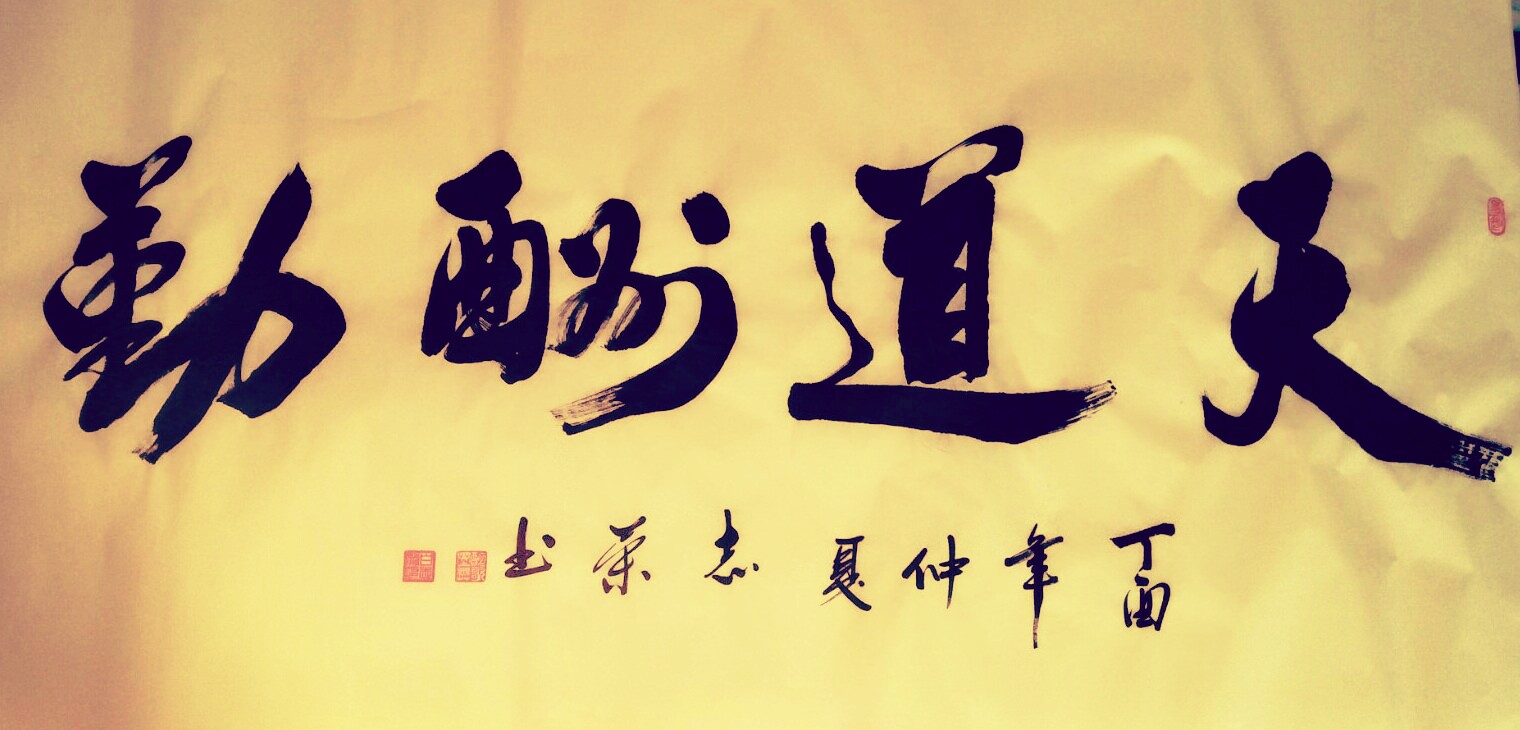 天道酬勤
丁酉年仲夏志荣书